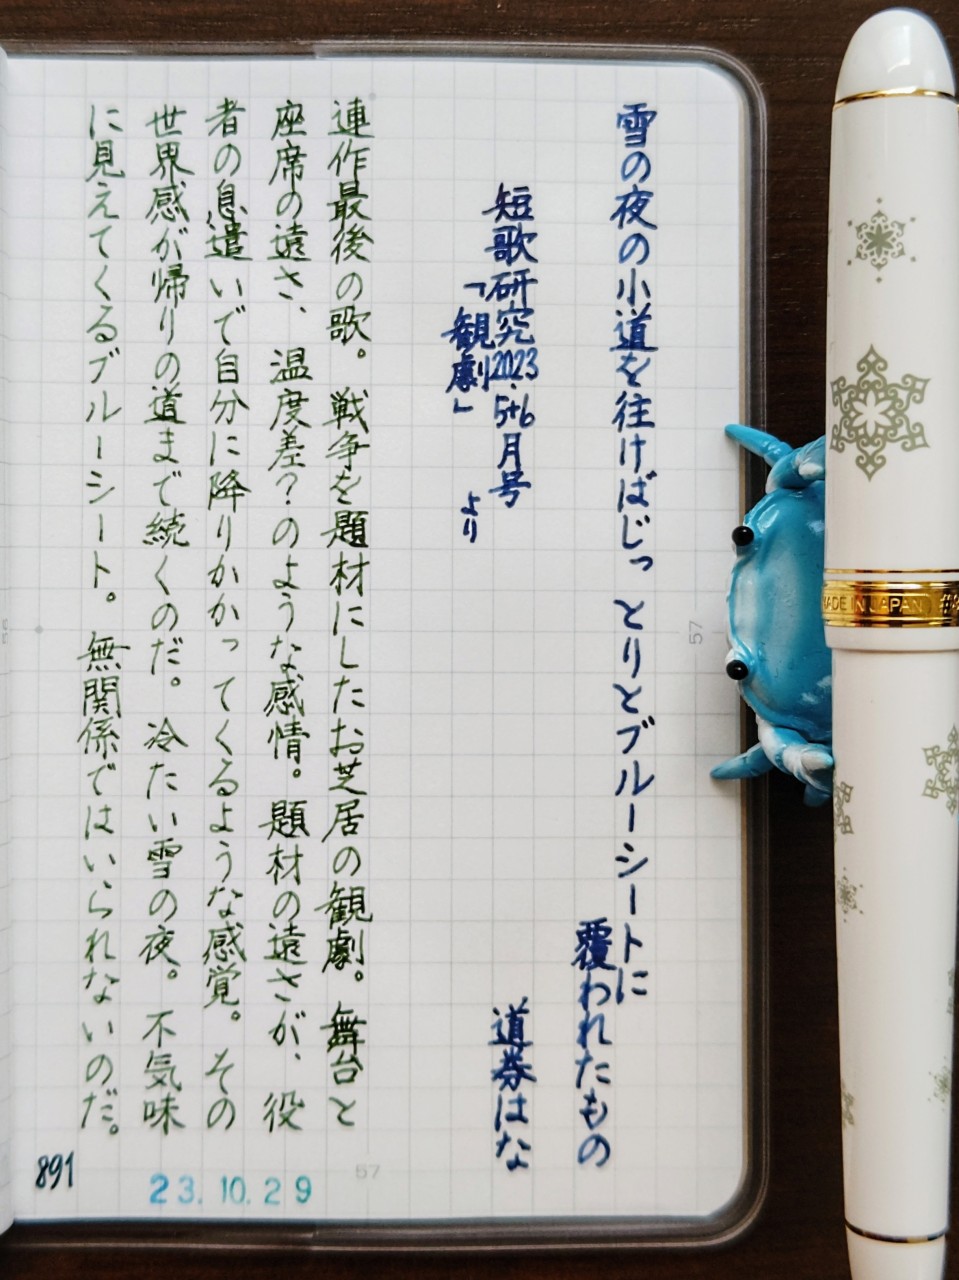 雪の夜の小道を往けばじっとりとブルーシートに
覆われたもの
道券はな
短歌研究2023.5+6月号
「観劇」より
連作最後の歌。戦争を題材にしたお芝居の観劇。舞台と
座席の遠さ、温度差？のような感情。題材の遠さが、役
者の息遣いで自分に降りかかってくるような感覚。その
世界感が帰りの道まで続くのだ。冷たい雪の夜。不気味
に見えてくるブルーシート。無関係ではいられないのだ。
891
23.10.29
57
57
MADE IN JAPAN